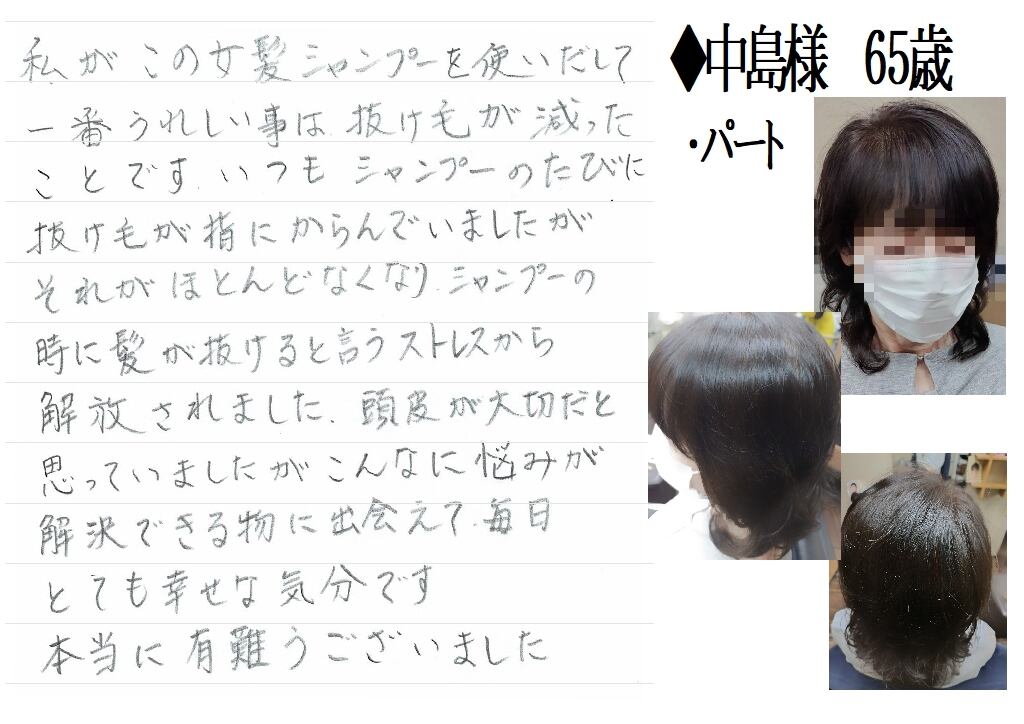 私がこの女髪シャンプーを使いだして
一番うれしい事は、抜け毛が減った
ことです。いつもシャンプーのたびに
抜け毛が指にからんでいましたが
それがほとんどなくなり、シャンプーの
時に髪が抜けると言うストレスから
解放されました。頭皮が大切だと
思っていましたがこんなに悩みが
解決できる物に出会えて、毎日
とても幸せな気分です
本当に有難うございました
♦中島様 65歳
・パート